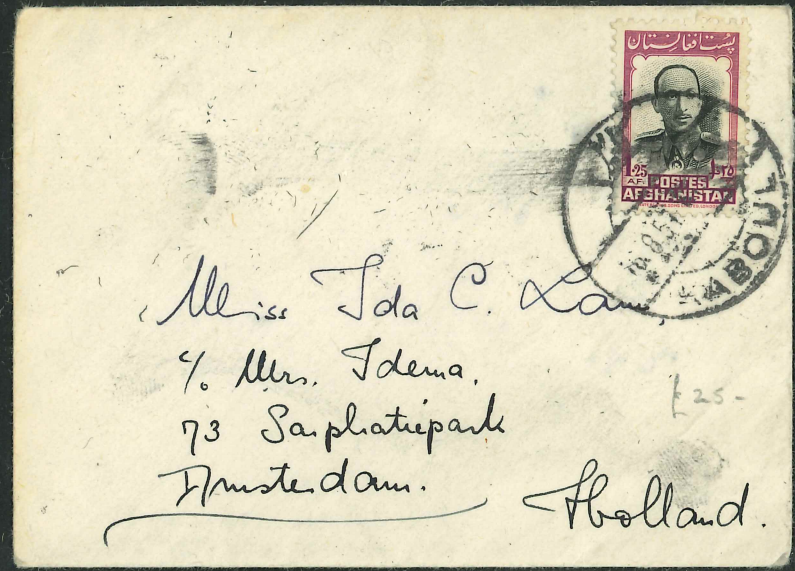 پست افغانستان
1.25 ۱.۲۵
AF. POSTES
AFGHANISTAN
KABOUL
Miss Ida C.
c/o Mrs. Idema.
73 Sarphatiepark
Amsterdam.
Holland.
£25-